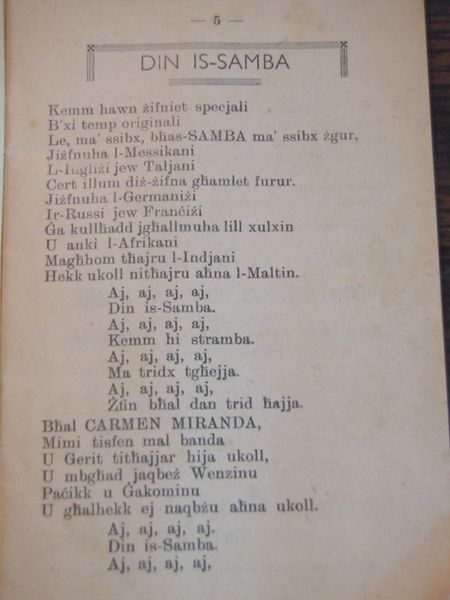 — 5 —
DIN IS-SAMBA
Kemm hawn żifniet specjali
B'xi temp originali
Le, ma' ssibx, bħas-SAMBA ma' ssibx żgur,
Jiżfnuha l-Messikani
L-Inglizi jew Taljani
Cert illum diż-żifna għamlet furur.
Jiżfnuha l-Germaniżi
Ir-Russi jew Franċiżi
Ġa kullħadd jgħallmuha lill xulxin
U anki l-Afrikani
Magħhom tħajru l-Indjani
Hekk ukoll nitħajru aħna l-Maltin.
Aj, aj, aj, aj,
Din is-Samba.
Aj, aj, aj, aj,
Kemm hi stramba.
Aj, aj, aj, aj,
Ma tridx tgħejja.
Aj, aj, aj, aj,
Żfin bħal dan trid ħajja.
Bħal CARMEN MIRANDA,
Mimi tisfen mal banda
U Gerit titħajjar hija ukoll,
U mbgħad jaqbeż Wenzinu
Paċikk u Ġakominu
U għalhekk ej naqbżu aħna ukoll.
Aj, aj, aj, aj.
Din is-Samba.
Aj, aj, aj, aj,